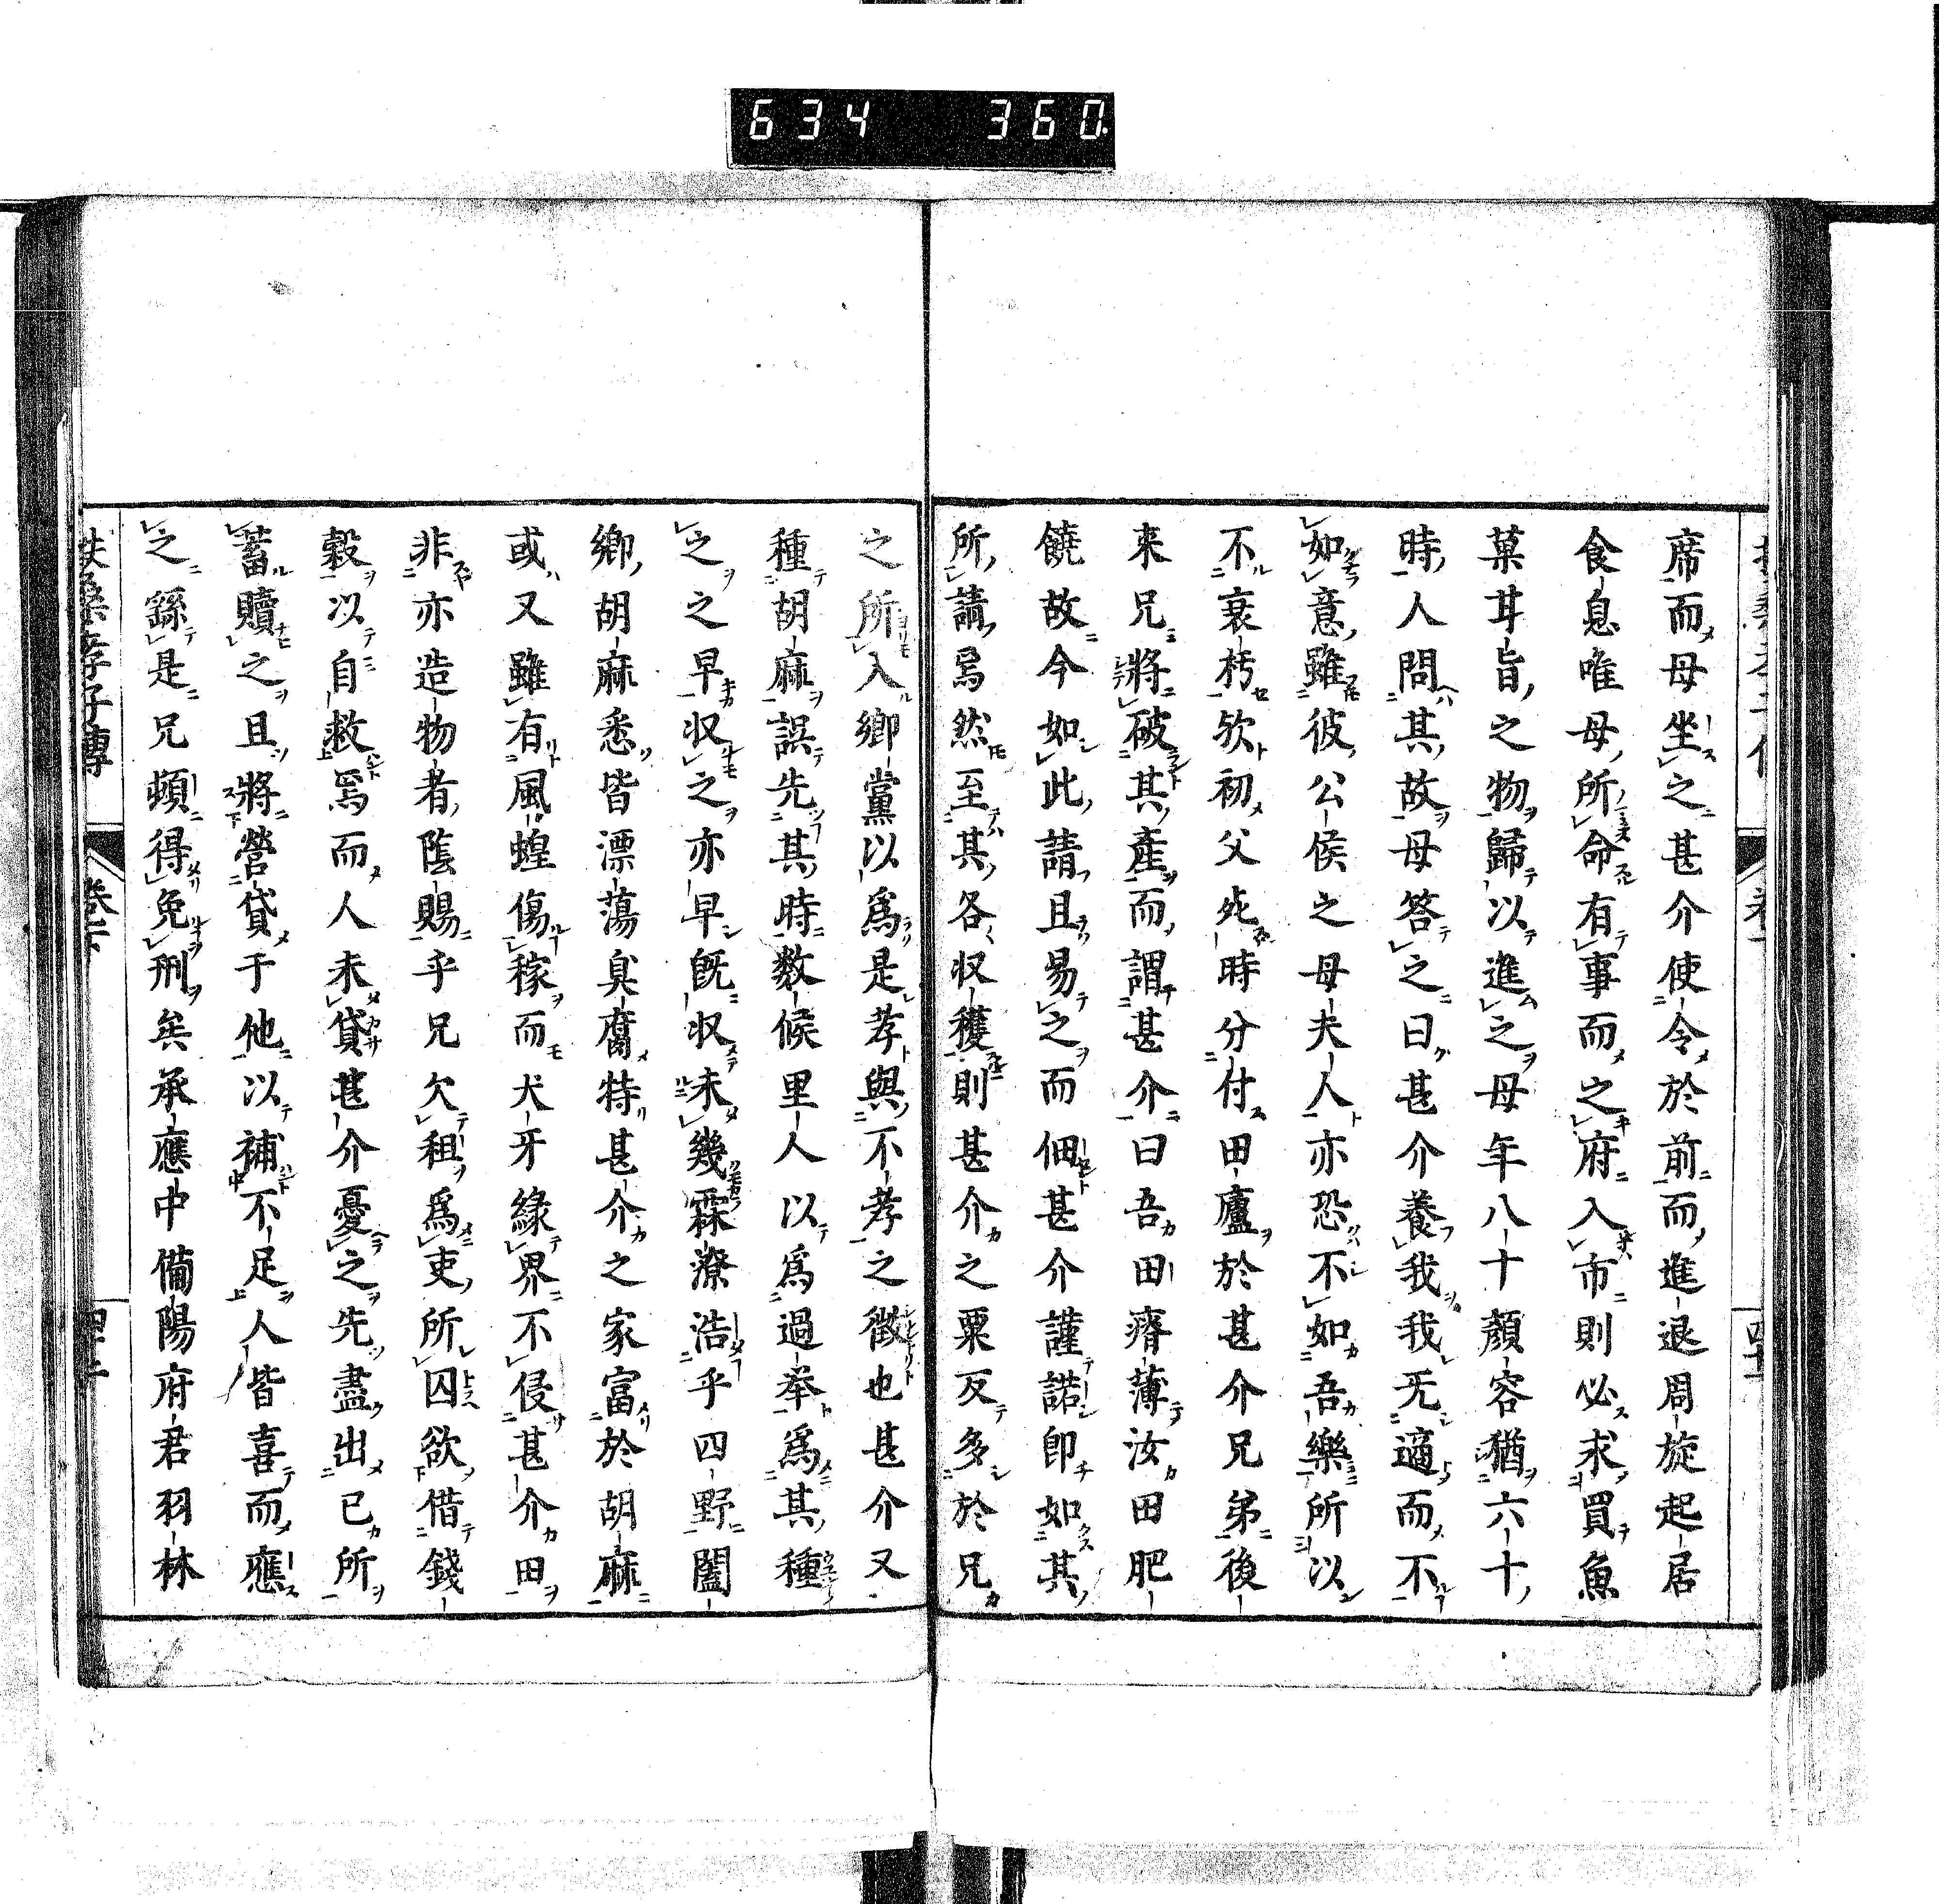 634 360
席而母坐之甚介使令於前而進退周旋起居
食息唯母所命有事而之府入市則必求買魚
菓耳旨之物歸以進之母年八十顏容猶六十
時人問其故母答之曰甚介養我我无適而不
如意雖彼公侯之母夫人亦恐不如吾樂所以
不衰朽欤初父死時分付田廬於甚介兄弟後
来兄將破其產而謂甚介曰吾田瘠薄汝田肥
饒故今如此請且易之而佃甚介謹諾即如其
所請焉然至其各収穫則甚介之粟反多於兄
之所入鄉黨以爲是孝與不孝之徵也甚介又
種胡麻誤先其時数候里人以爲過举爲其種
之之早収之亦早既収未幾霖潦浩乎四野闔
鄉胡麻悉皆漂蕩臭腐特甚介之家富於胡麻
或又雖有風蝗傷稼而犬牙緣界不侵甚介田
非亦造物者陰賜乎兄欠租爲吏所囚欲借錢
穀以自救焉而人未貸甚介憂之先盡出已所
蓄贖之且將營貸于他以補不足人皆喜而應
之繇是兄頓得免刑矣承應中備陽府君羽林
扶桑孝子傳 卷下